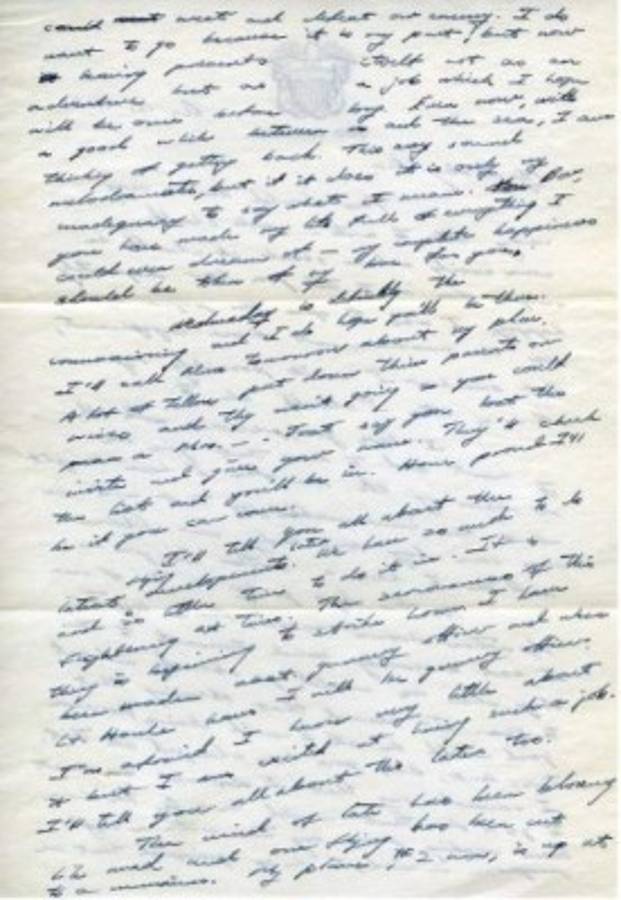 could meet and defeat our enemy. I do
want to go because it is my part, but now
leaving presents itself not as an
adventure but as a job which I hope
will be over before long. Even now, with
a good while between and the sea, I am
thinking of getting back. This may sound
melodramatic, but if it does it is only my
inadequacy to say what I mean. You,
you have made my life full of everything I
could ever dream of — of complete happiness
should be then if for you,
Saturday is the
commissioning and I do hope you'll be there.
I'll call tomorrow about my plan.
A lot of fellows put down their parents or
wives and they aren't going so you could
use a Mrs. —. Just say you lost the
invite and give your name. They'll check
the list and you'll be in. How proud I'll
be if you can come.
I'll tell you all about the
latest developments later. We have so much to do
and so little time to do it in. It is
frightening at times. The seriousness of this
thing is beginning to strike home. I have
been made asst. gunnery officer and when
Lt. leaves I will be gunnery officer.
I'm afraid I know very little about
it but I am at being such a job.
I'll tell you all about this later too.
The wind of late has been blowing
and our flying has been cut
to a minimum. My plane, #2 now, is up at